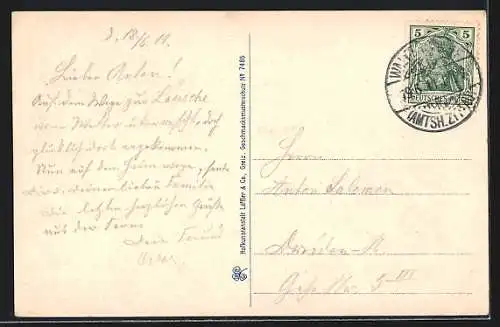 18/6 11.
Lieber Anton!
Auf dem Wege zur Lausche
vom Wetter überrascht, doch
glücklich dort angekommen.
Nun auf dem Heimwege, sende
deiner lieben Familie
die letzten herzlichen Grüße
aus der Ferne
Dein Freund
Hofkunstanstalt Löffler & Co., Greiz. Geschmacksmusterschutz Nº 7486
5 5
DEUTSCHES REICH
(AMTSH. ZITTAU)
Herrn
Anton Salomon
Dresden-A
5 III